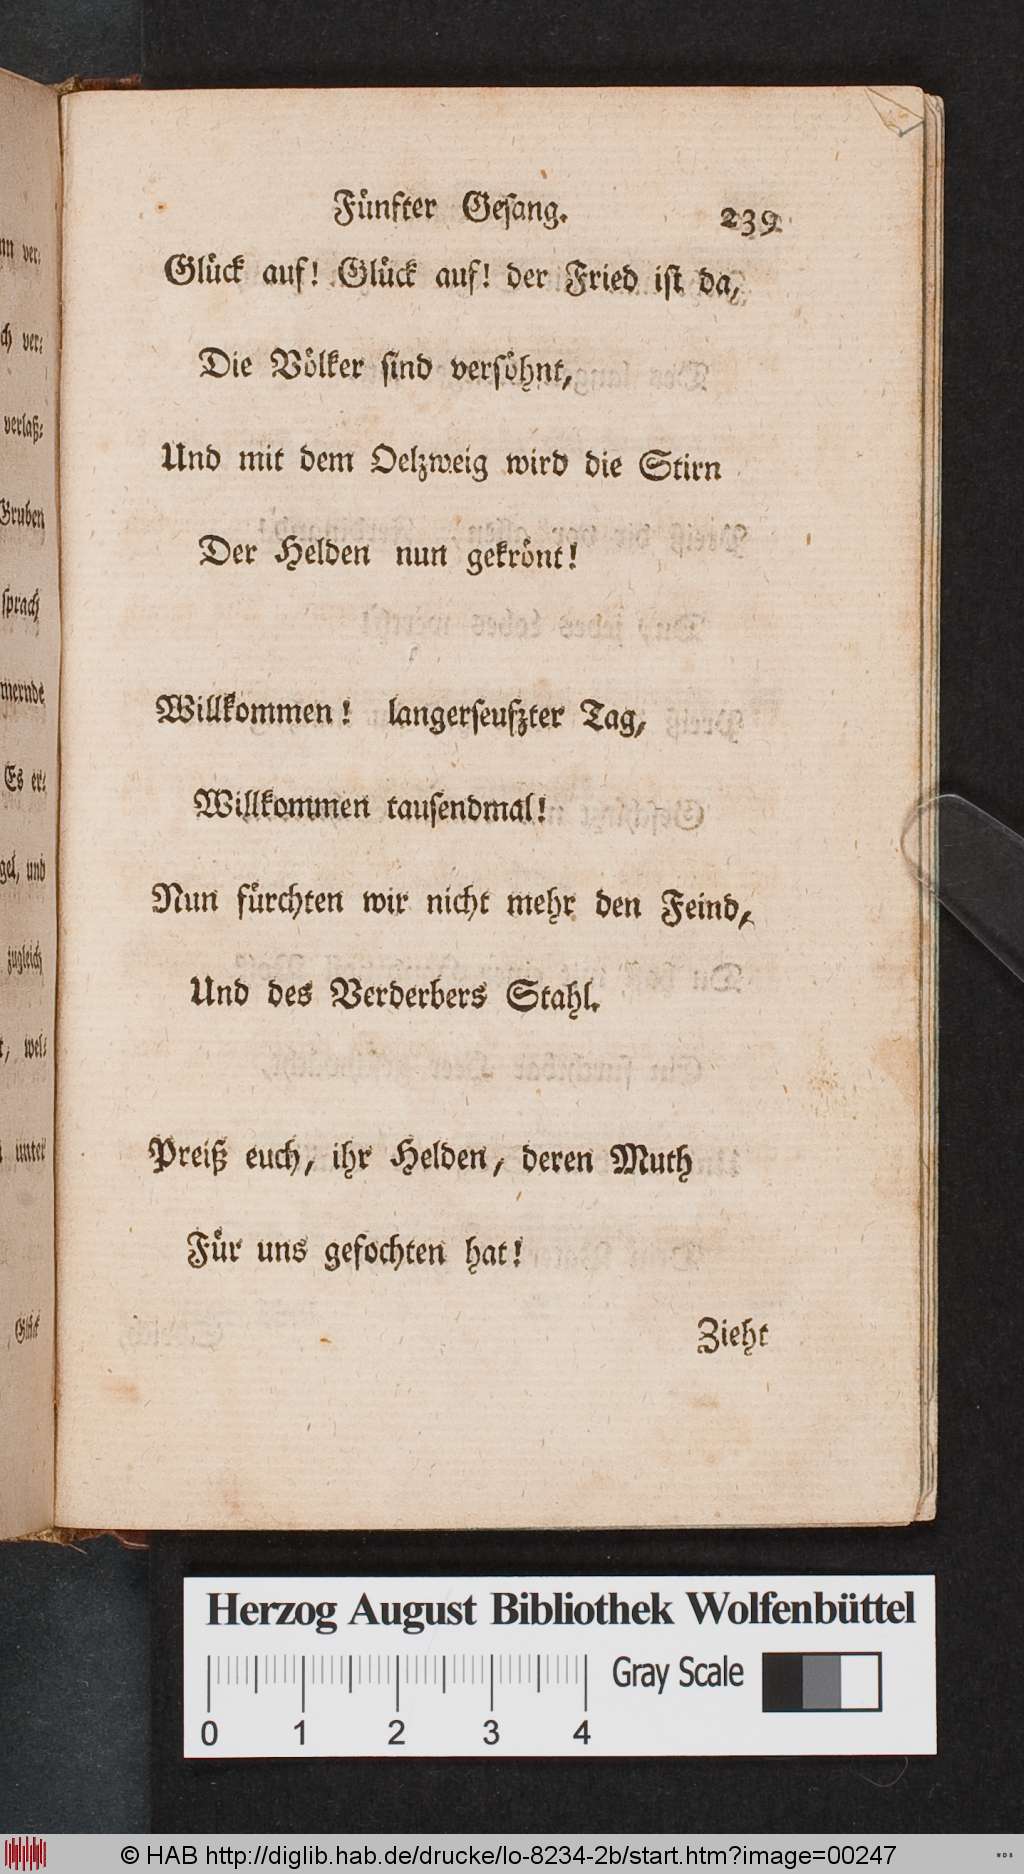 Fünfter Geſang. 239
Glück auf! Glück auf! der Fried iſt da,
Die Völker ſind verſöhnt,
Und mit dem Oelzweig wird die Stirn
Der Helden nun gekrönt!
Willkommen! langerſeufzter Tag,
Willkommen tauſendmal!
Nun fürchten wir nicht mehr den Feind,
Und des Verderbers Stahl.
Preiß euch, ihr Helden, deren Muth
Für uns gefochten hat!
Zieht
ver⸗
ch ver⸗
verlaß⸗
Gruben
ſprach
Es er⸗
und
zugleich
wel⸗
unter
Glück
Herzog August Bibliothek Wolfenbüttel
Gray Scale
0 1 2 3 4
© HAB http://diglib.hab.de/drucke/lo-8234-2b/start.htm?image=00247